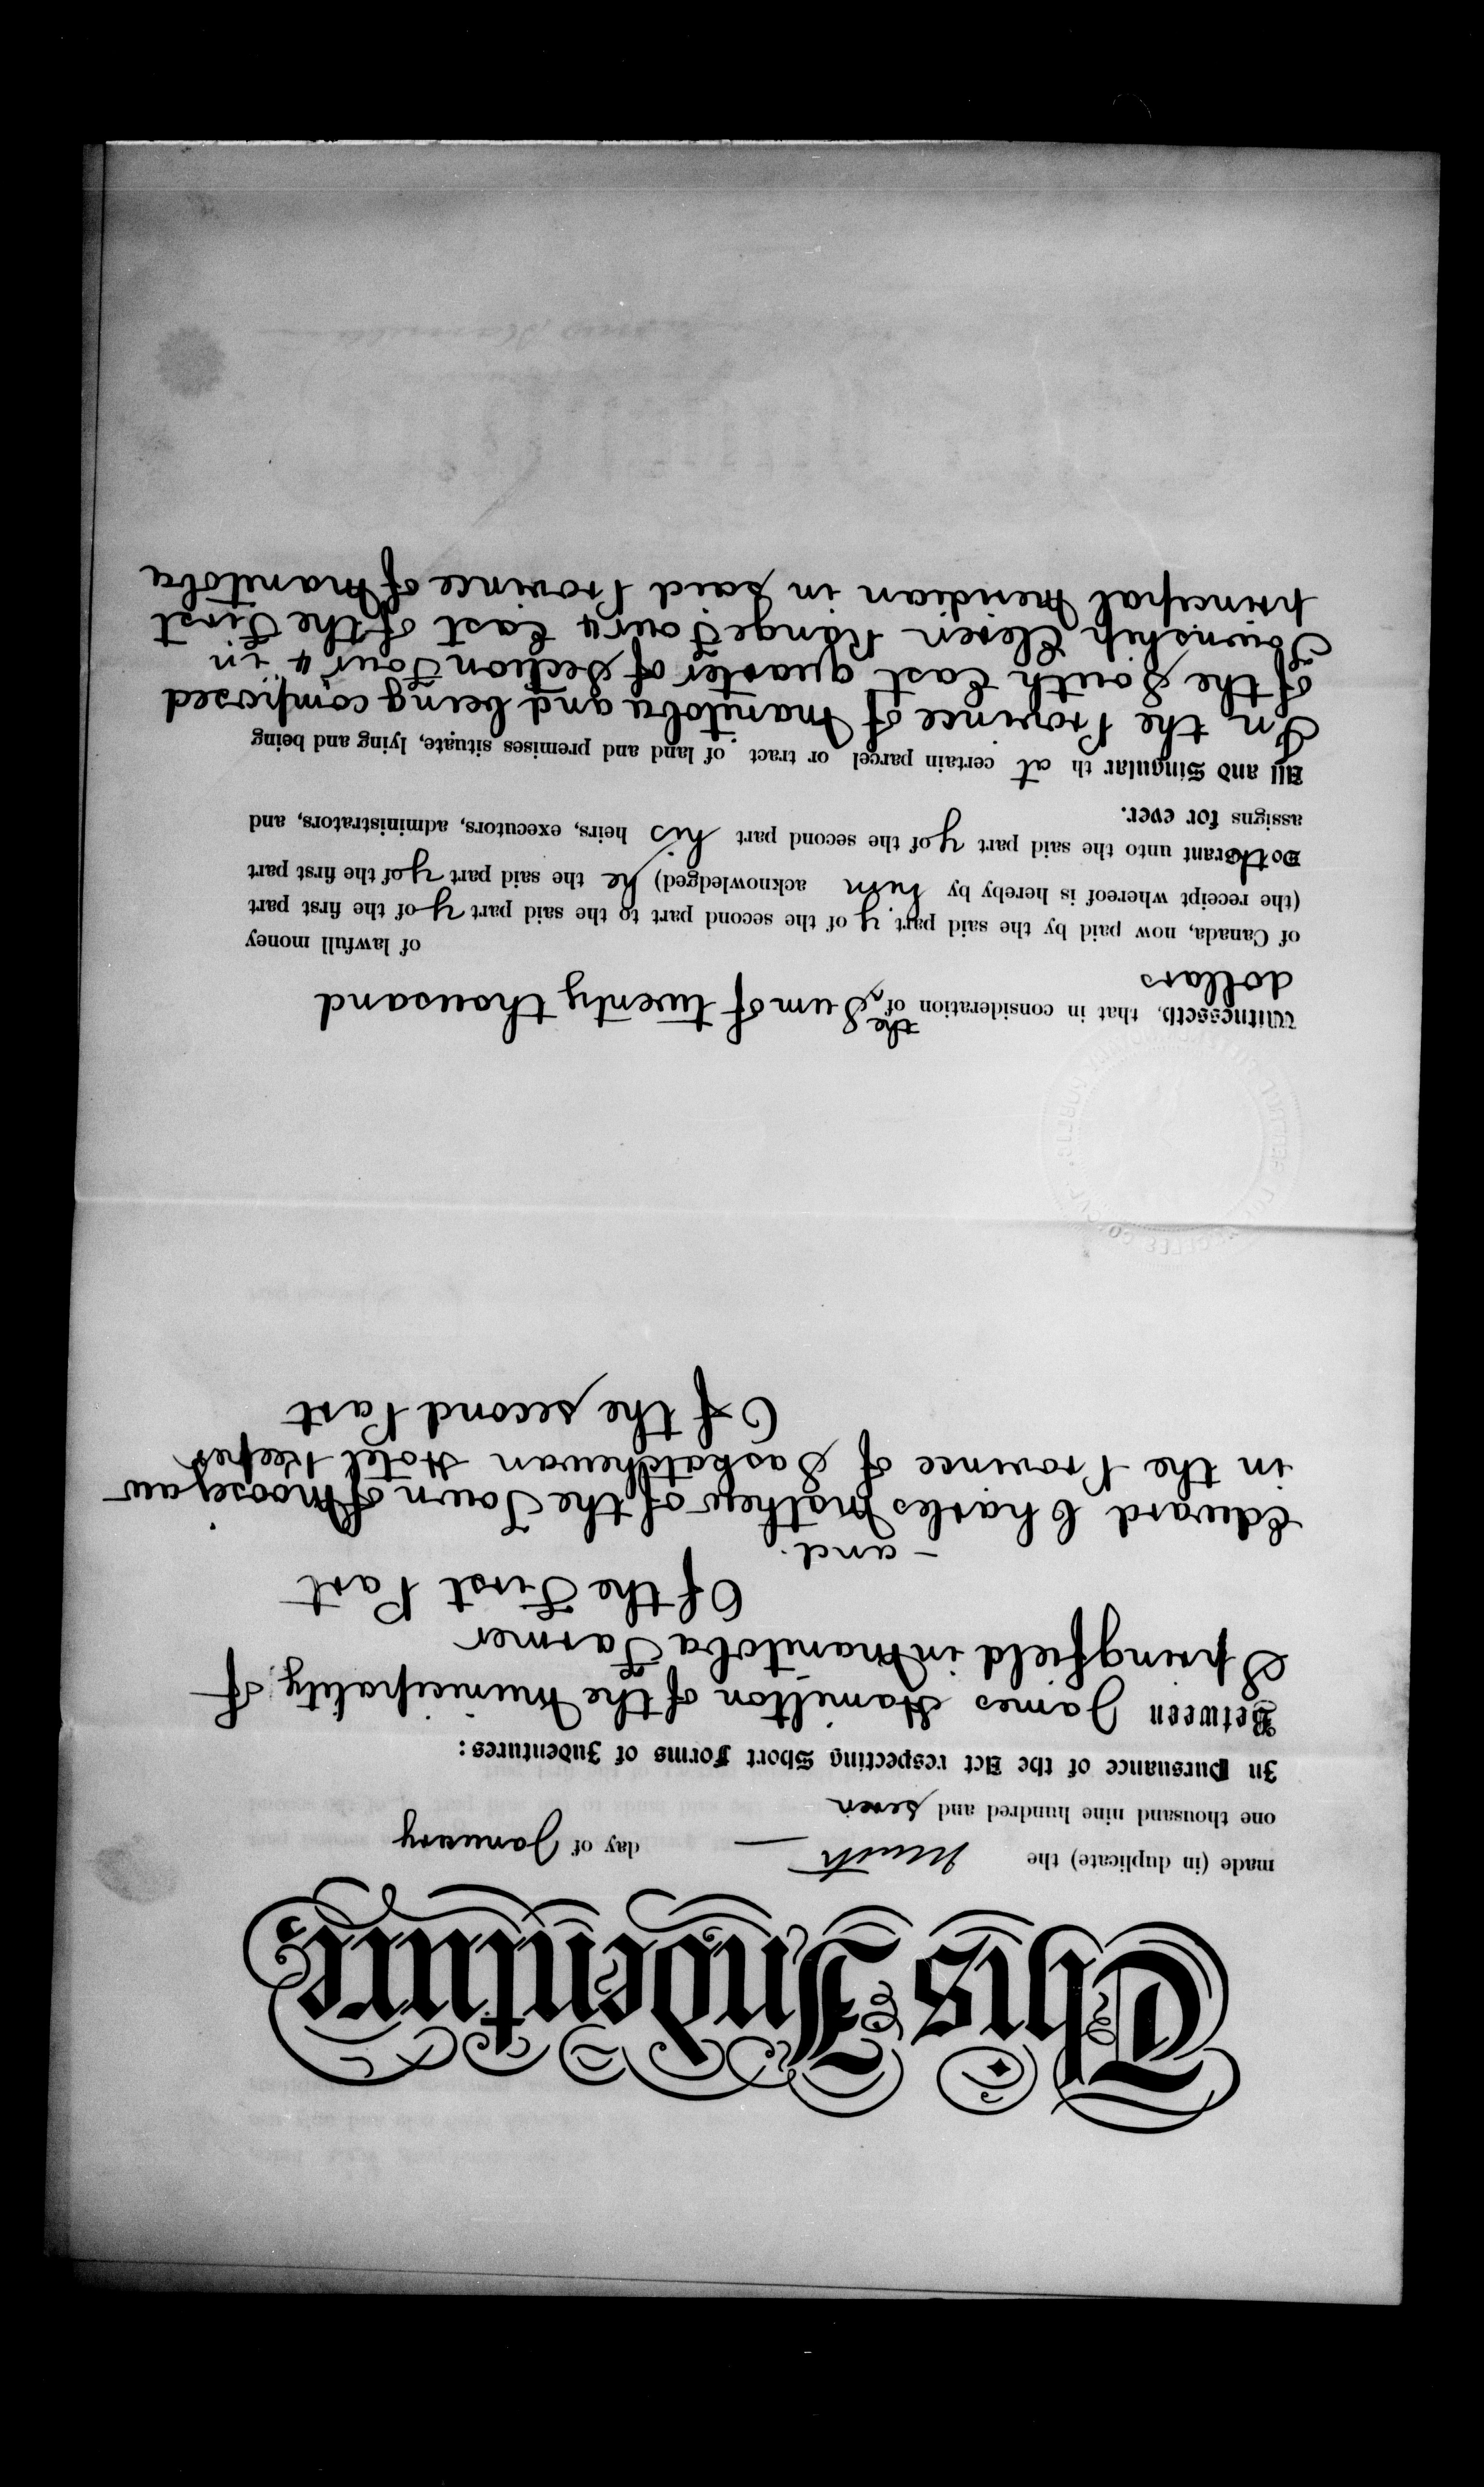 This Indenture
made (in duplicate) the ninth day of January
one thousand nine hundred and seven
In Pursuance of the Act respecting Short Forms of Indentures:
Between James Hamilton of the Municipality of
Springfield in Manitoba Farmer
Of the First Part
- and.
Edward Charles Mathew of the Town of Moosejaw
in the Province of Saskatchewan Hotel Keeper
Of the second Part
Witnesseth, that in consideration of the Sum of twenty thousand
dollars
of lawfull money
of Canada, now paid by the said party of the second part to the said party of the first part
(the receipt whereof is hereby by him acknowledged) he the said party of the first part
Doth Grant unto the said party of the second part his heirs, executors, administrators, and
assigns for ever.
All and Singular that certain parcel or tract of land and premises situate, lying and being
In the Province of Manitoba and being composed
of the South East quarter of Section Four 4 in
Township Eleven Range Four 4 East of the First
principal Meridian in said Province of Manitoba